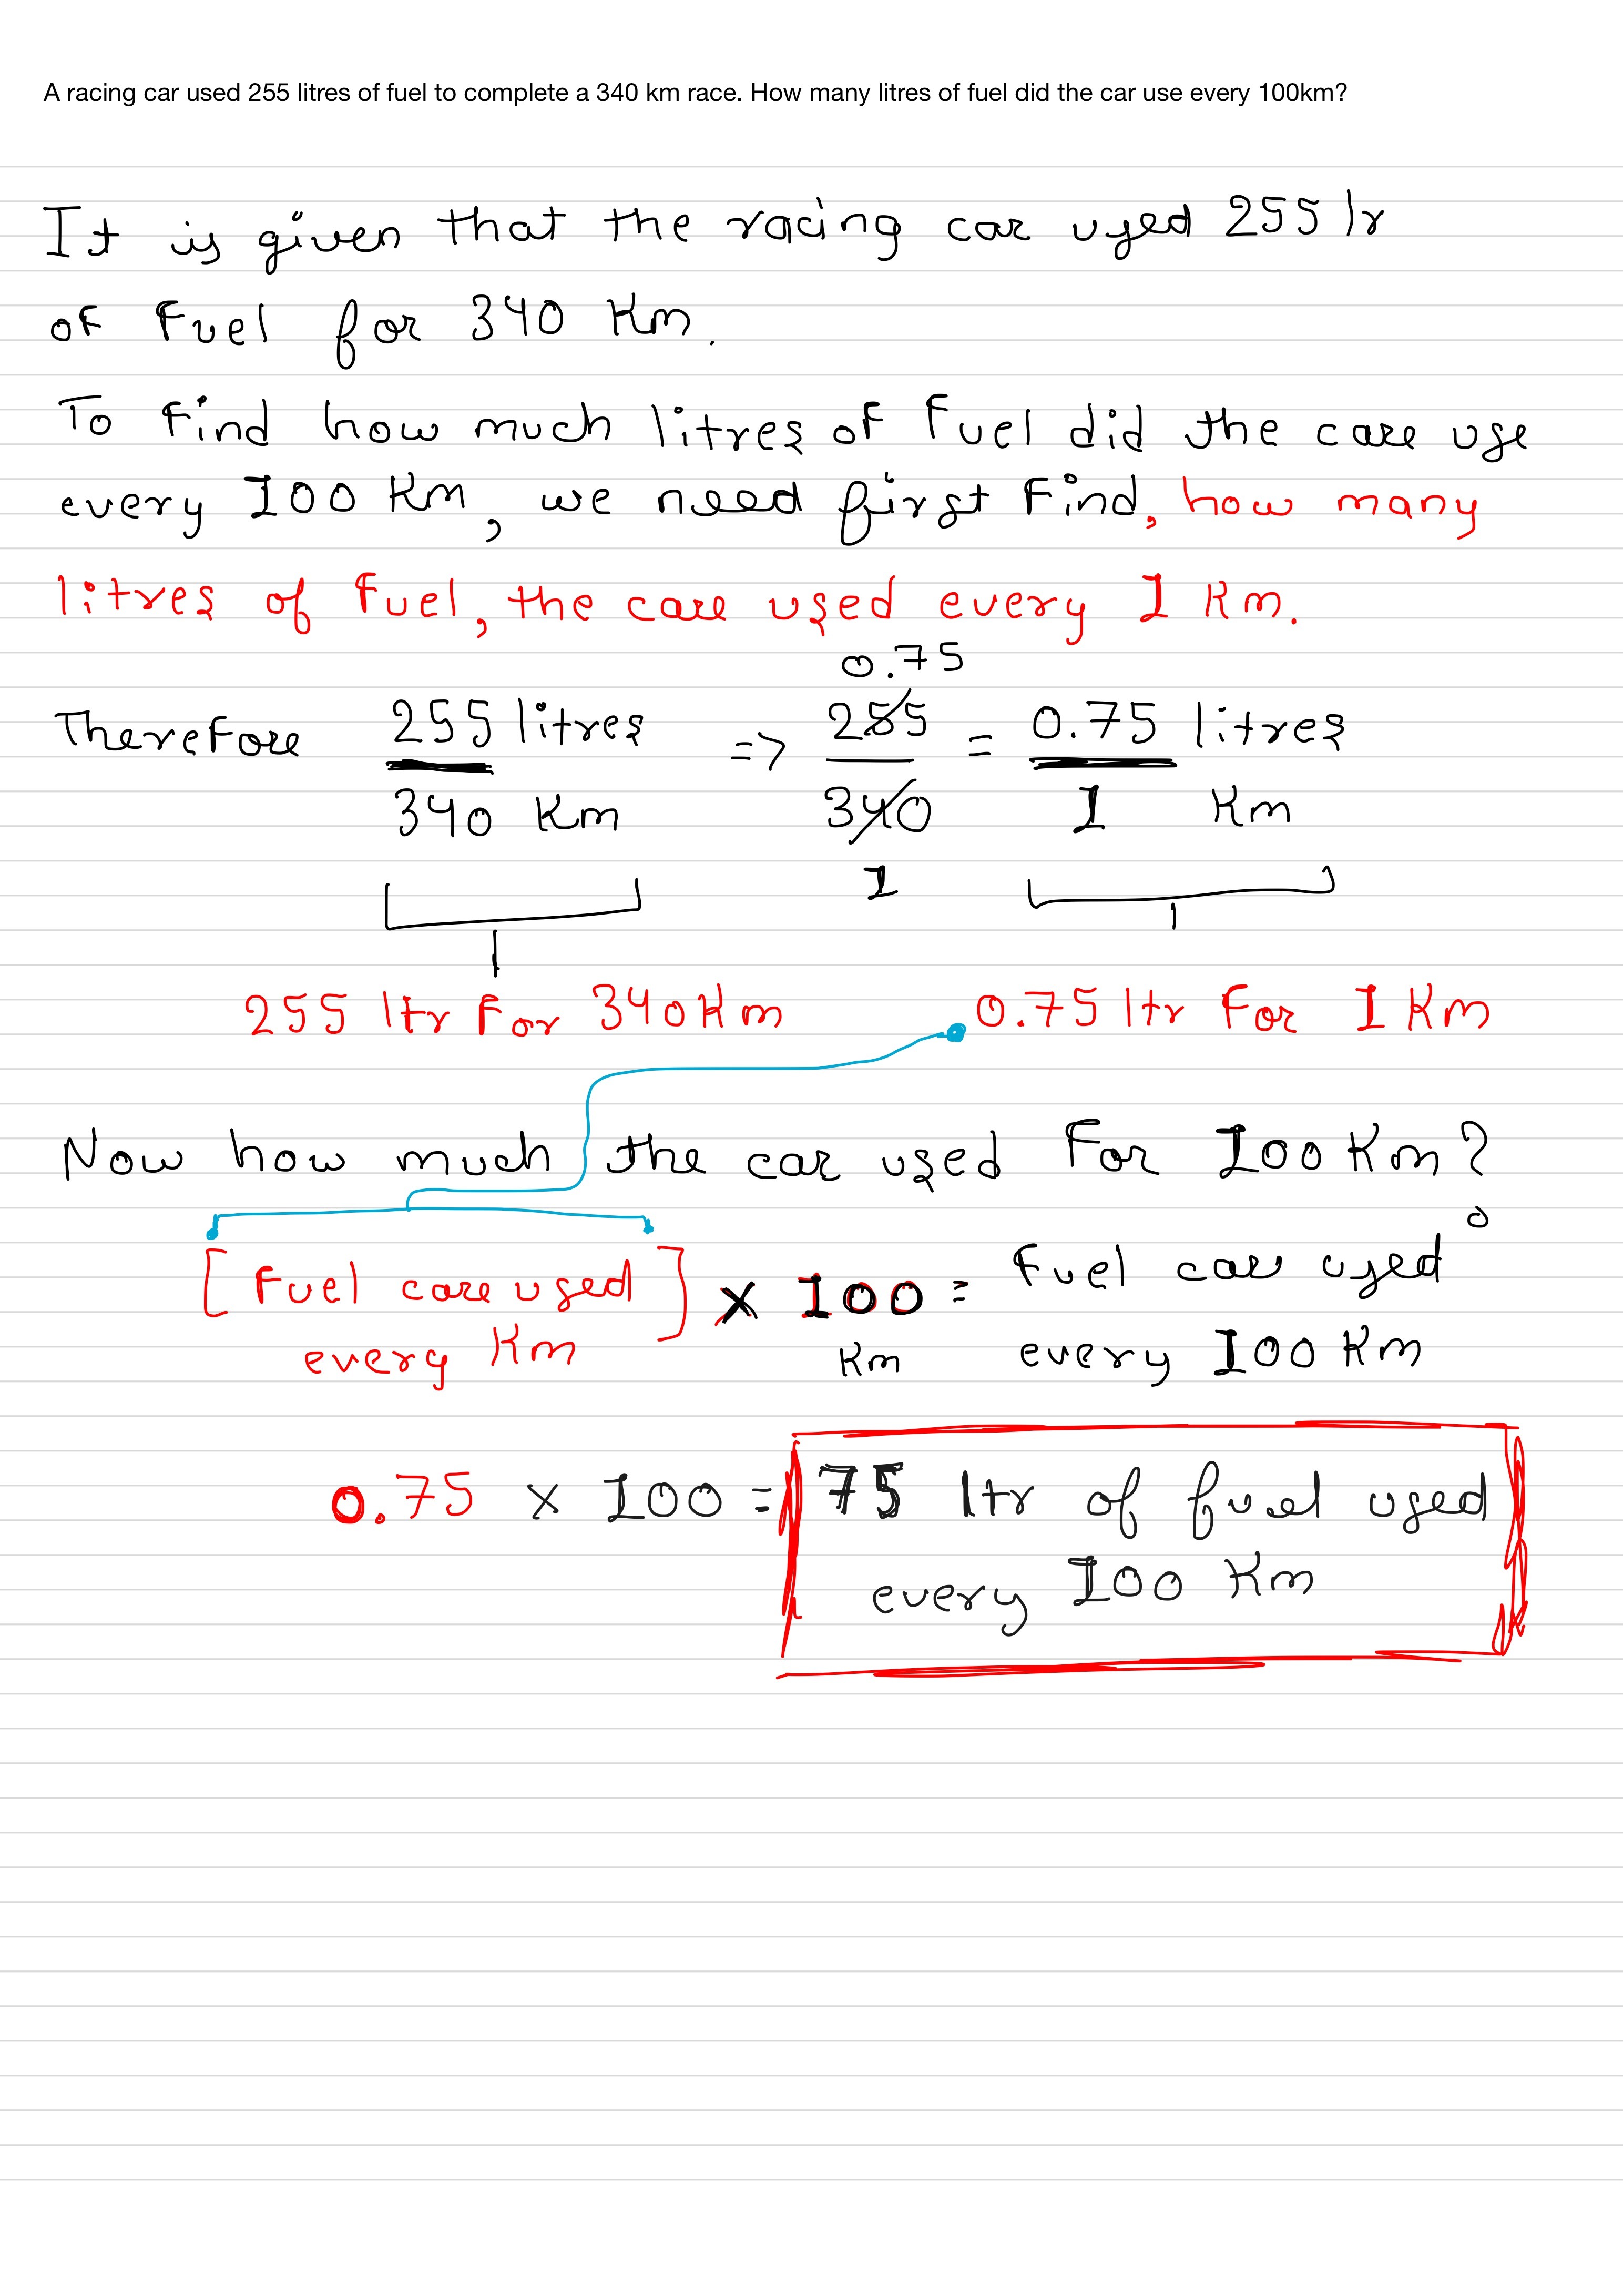 A racing car used 255 litres of fuel to complete a 340 km race. How many litres of fuel did the car use every 100km?
It is given that the racing car used 255 lr
of Fuel for 340 Km.
To Find how much litres of Fuel did the care use
every 100 Km, we need first Find, how many
litres of Fuel, the care used every 1 Km.
0.75
Therefore 255 litres => 255 = 0.75 litres
340 Km 340 1 Km
1
255 ltr For 340Km 0.75 ltr For 1 Km
Now how much the car used For 100 Km?
[Fuel care used] × 100 = Fuel car used
every Km Km every 100 Km
0.75 × 100 = 75 ltr of fuel used
every 100 Km